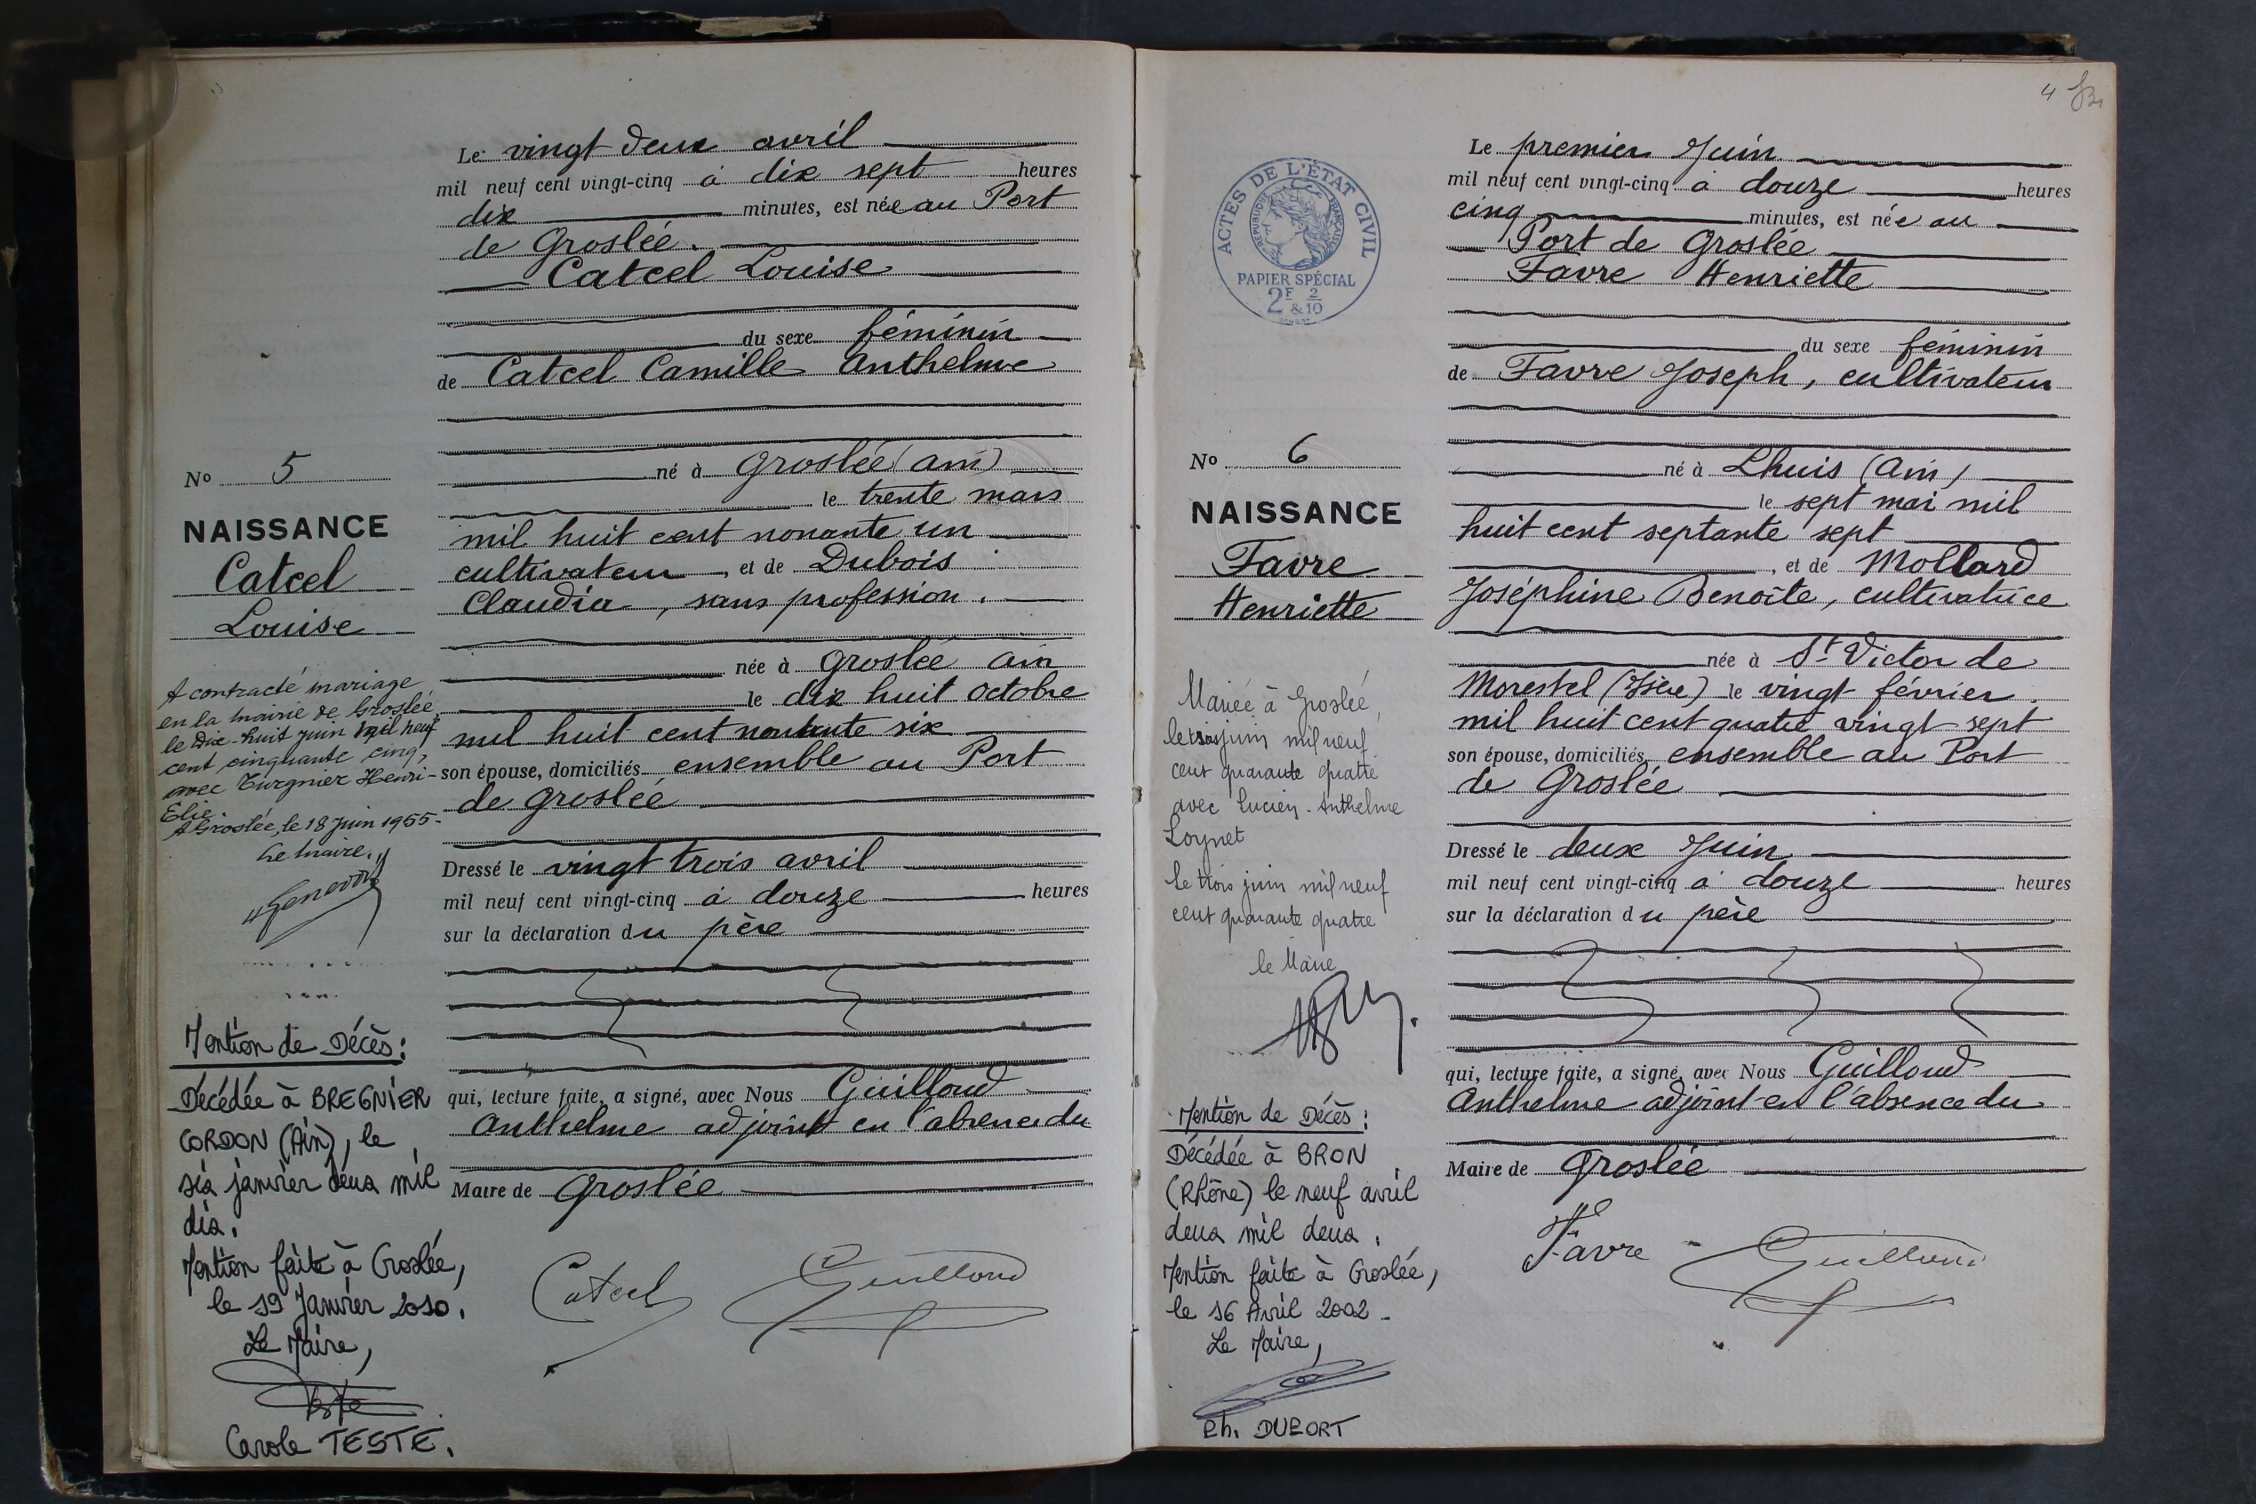 Le vingt deux avril
mil neuf cent vingt-cinq à dix sept heures
dix minutes, est née au Port
de Groslée.
Catcel Louise
du sexe féminin
de Catcel Camille Anthelme
né à Groslée (Ain)
le trente mars
mil huit cent nonante un
cultivateur, et de Dubois
Claudia, sans profession.
née à Groslée Ain
le dix huit octobre
mil huit cent nonante six
son épouse, domiciliés ensemble au Port
de Groslée
Dressé le vingt trois avril
mil neuf cent vingt-cinq à douze heures
sur la déclaration du père
qui, lecture faite, a signé, avec Nous Guilloud
Anthelme adjoint en l'absence du
Maire de Groslée
Catcel Guilloud
No 5
NAISSANCE
Catcel
Louise
A contracté mariage
en la mairie de Groslée
le Dix-huit juin mil neuf
cent cinquante cinq,
avec Turgnier Henri-
Elie
A Groslée, le 18 Juin 1955-
Le Maire.
Mention de Décès:
Décédée à BREGNIER
CORDON (Ain), le
six janvier deux mil
dix.
Mention faite à Groslée,
le 19 Janvier 2010.
Le Maire,
Carole TESTE.
4
Le premier Juin
mil neuf cent vingt-cinq à douze heures
cinq minutes, est née au
Port de Groslée
Favre Henriette
du sexe féminin
de Favre Joseph, cultivateur
né à Lhuis (Ain)
le sept mai mil
huit cent septante sept
, et de Mollard
Joséphine Benoîte, cultivatrice
née à St Victor de
Morestel (Isère) le vingt février
mil huit cent quatre vingt sept
son épouse, domiciliés ensemble au Port
de Groslée
Dressé le deux Juin
mil neuf cent vingt-cinq à douze heures
sur la déclaration du père
qui, lecture faite, a signé, avec Nous Guilloud
Anthelme adjoint en l'absence du
Maire de Groslée
Favre Guilloud
ACTES DE L'ÉTAT CIVIL
RÉPUBLIQUE FRANÇAISE
PAPIER SPÉCIAL
2F & 2/10
No 6
NAISSANCE
Favre
Henriette
Mariée à Groslée,
le trois juin mil neuf
cent quarante quatre
avec Lucien-Anthelme
Loynet
Le trois juin mil neuf
cent quarante quatre
le Maire
Mention de Décès:
Décédée à BRON
(Rhône) le neuf avril
deux mil deux.
Mention faite à Groslée,
le 16 Avril 2002-
Le Maire,
Ph. DUPORT